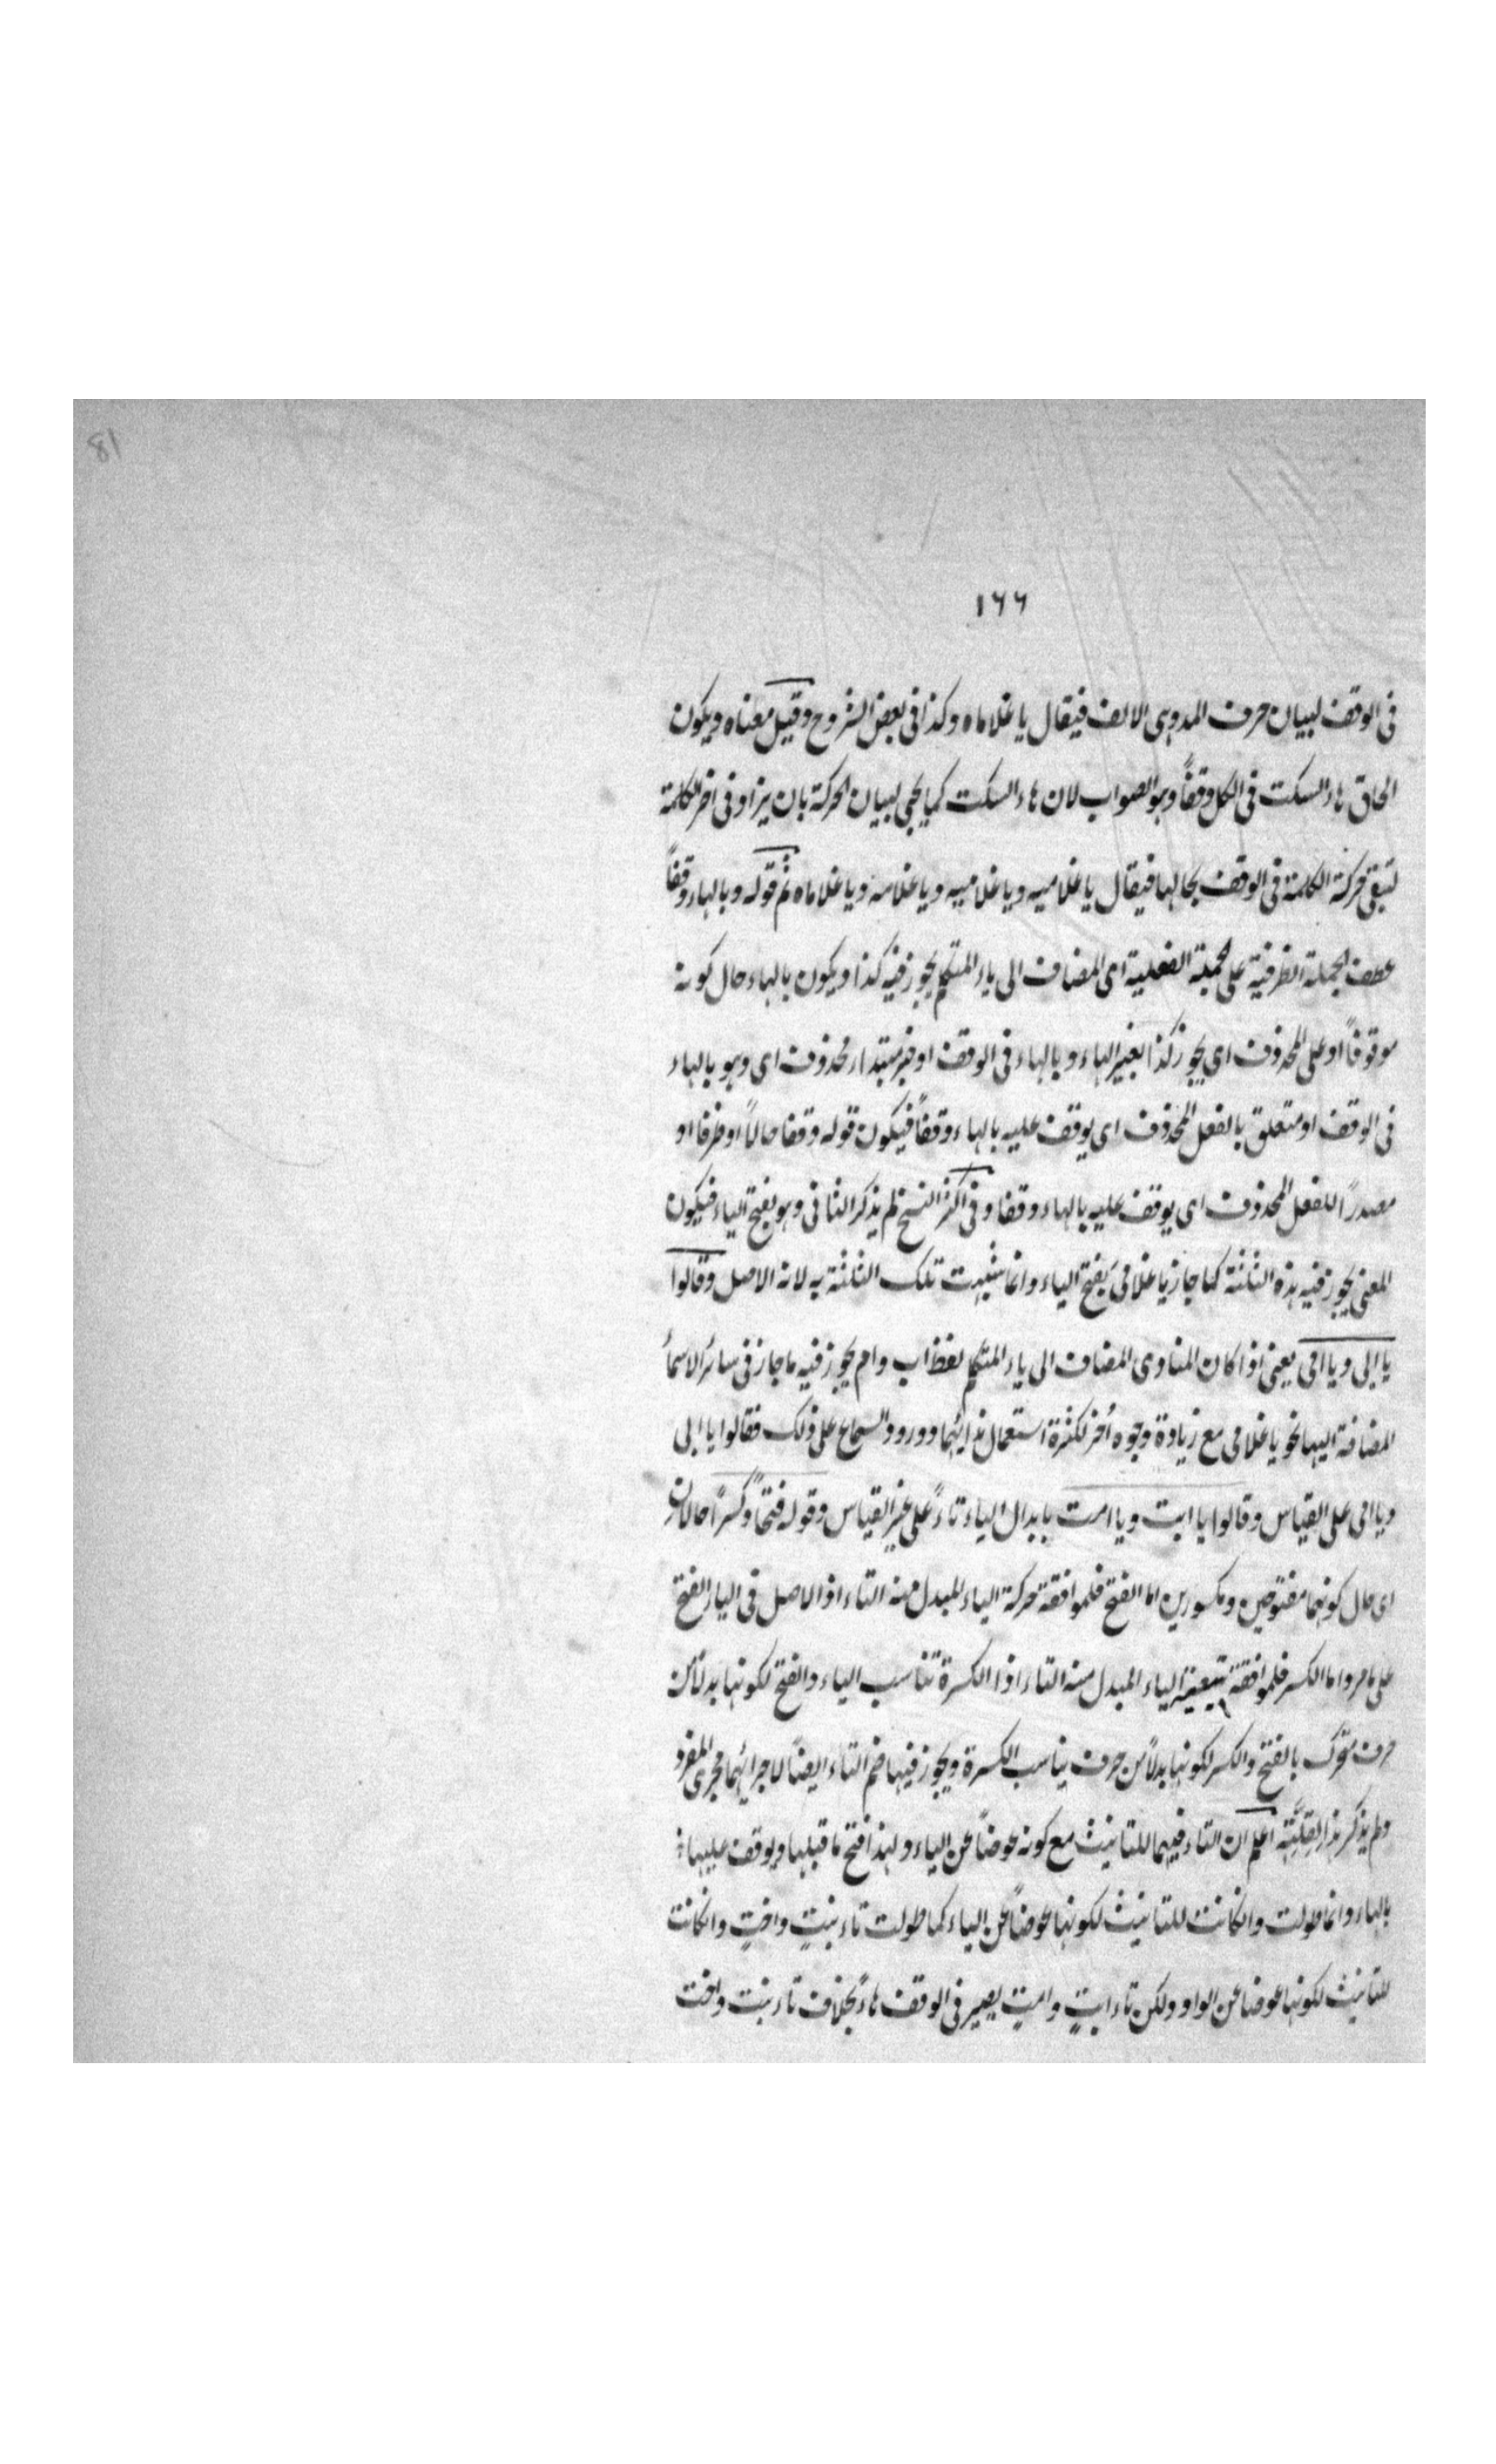 81
١٦٦
فى الوقف لبيان حرف المد وهى الالف فيقال يا غلاماه وكذا فى بعض الشروح وقيل معناه ويكون
الحاق هاء السكت فى الكل وقفاً وهو الصواب لان هاء السكت كما يجئ لبيان الحركة بان يزاد فى اخر الكلمة
لتبقى حركة الكلمة فى الوقف بحالها فيقال يا غلاميه ويا غلاميه ويا غلامه ويا غلاماه ثم قوله وبالهاء وقفاً
عطف الجملة الظرفية على الجملة الفعلية اى المضاف الى ياء المتكلم يجوز فيه كذا ويكون بالهاء حال كونه
موقوفاً او على المحذوف اى يجوز كذا بغير الهاء وبالهاء فى الوقف او خبر مبتداء محذوف اى وهو بالهاء
فى الوقف او متعلق بالفعل المحذوف اى يوقف عليه بالهاء وقفاً فيكون قوله وقفا حالاً او ظرفا او
مصدراً للفعل المحذوف اى يوقف عليه بالهاء وقفا وفى اكثر النسخ لم يذكر الثانى وهو بفتح الياء فيكون
المعنى يجوز فيه هذه الثلثة كما جاز يا غلامىَ بفتح الياء وانما شبهت تلك الثلثة به لانه الاصل وقالوا
يا ابى ويا امى يعنى اذا كان المنادى المضاف الى ياء المتكلم لفظ اب وام يجوز فيه ما جاز فى سائر الاسمأ
المضافة اليها نحو يا غلامى مع زيادة وجوه اُخر لكثرة استعمال ندائهما وورود السماع على ذلك فقالوا يا ابى
ويا امى على القياس وقالوا يا ابت ويا امت بابدال الياء تاءً على غير القياس وقوله فتحاً وكسراً حالان
اى حال كونهما مفتوحين ومكسورين اما الفتح فلموافقة حركة الياء المبدل منه التاء اذ الاصل فى الياء الفتح
على ما مر واما الكسر فلموافقة الياء المبدل منه التاء اذا الكسرة تناسب الياء والفتح لكونها بدلاً من
حرف متحرك بالفتح والكسر لكونها بدلاً من حرف يناسب الكسرة ويجوز فيها ضم التاء ايضاً لاجرائهما مجرى المفرد
ولم يذكر هذا لقلّته اعلم ان التاء فيهما للتانيث مع كونه عوضاً عن الياء ولهذا فتح ما قبلها ويوقف عليها
بالهاء وانما طولت وانكانت للتانيث لكونها عوضاً عن الياء كما طولت تاء بنتٍ واختٍ وانكانت
للتانيث لكونها عوضا عن الواو ولكن تاء ابتٍ وامتٍ يصير فى الوقف هاءً بخلاف تاء بنت واخت